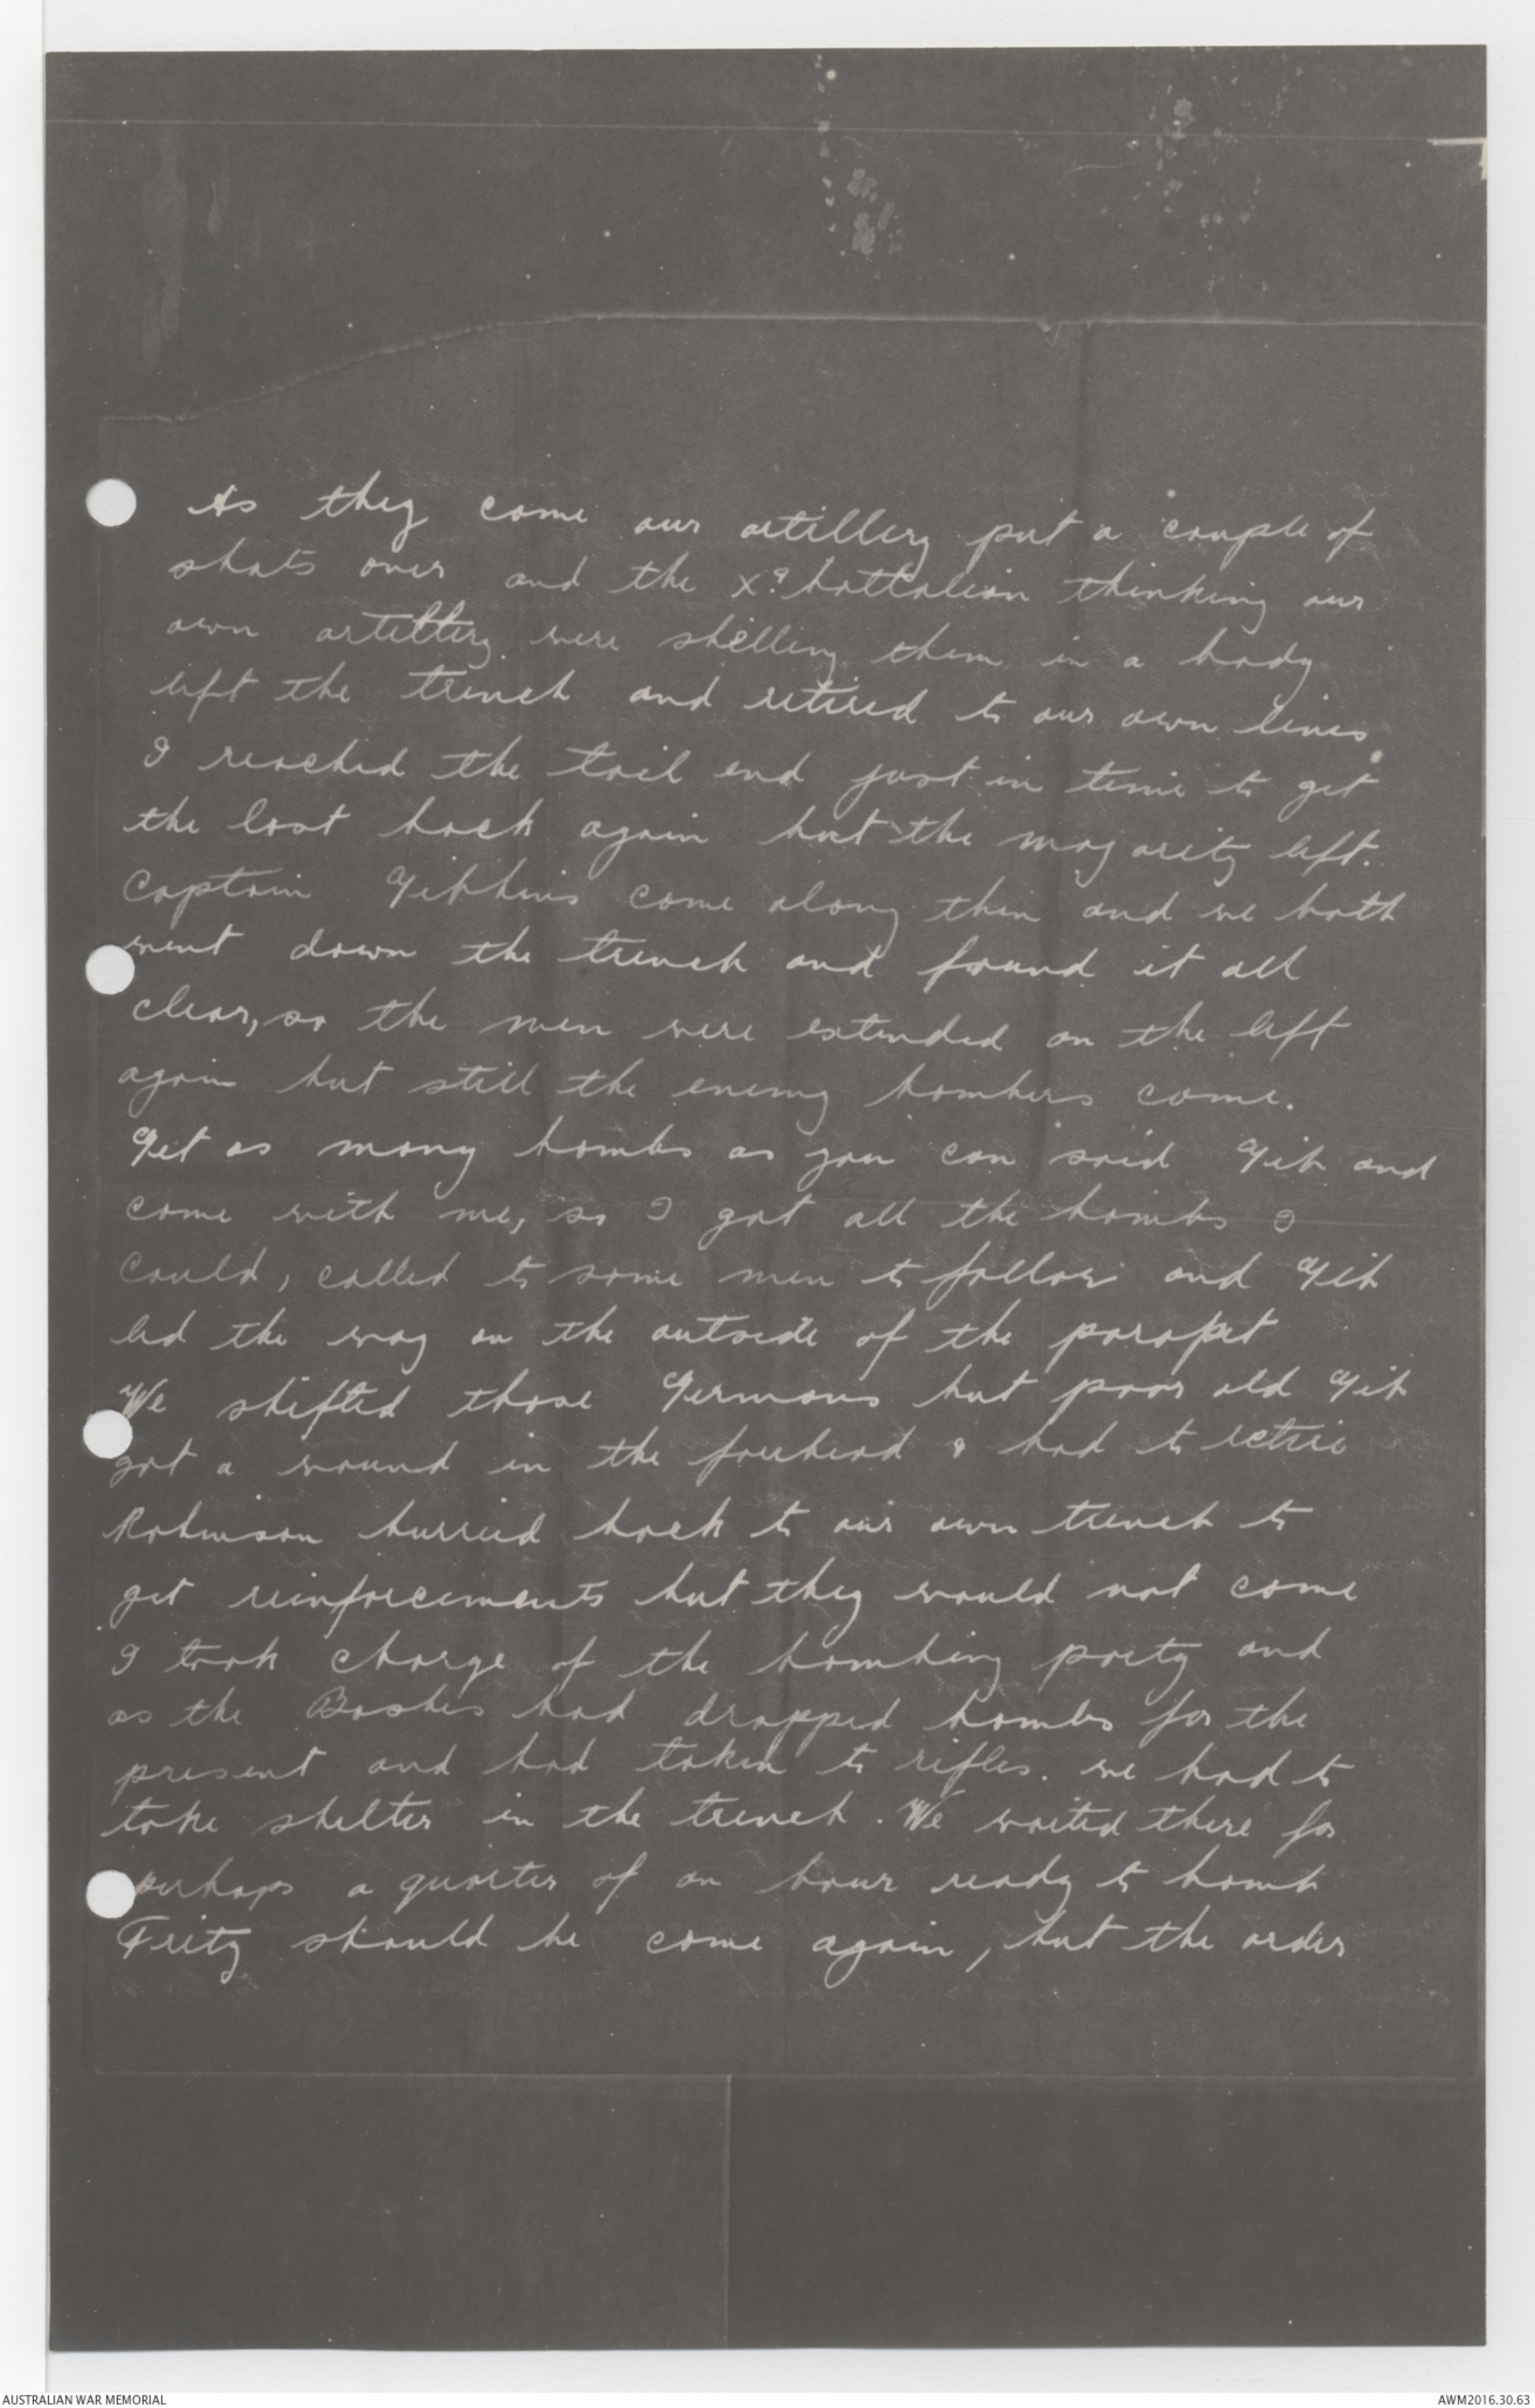 As they come our artillery put a couple of
shots over and the x? battalion thinking our
own artillery were shelling them in a body
left the trench and retired to our own lines.
I reached the tail end just in time to get
the last back again but the majority left.
Captain Gibbins came along then and we both
went down the trench and found it all
clear, so the men were extended on the left
again but still the enemy bombers came.
Get as many bombs as you can said Gib and
come with me, so I got all the bombs I
could, called to some men to follow and Gib
led the way on the outside of the parapet
We shifted those Germans but poor old Gib
got a wound in the forehead & had to retire
Robinson hurried back to our own trench to
get reinforcements but they would not come
I took charge of the bombing party and
as the Boshes had dropped bombs for the
present and had taken to rifles. we had to
take shelter in the trench. We waited there for
perhaps a quarter of an hour ready to bomb
Fritz should he come again, but the order
AUSTRALIAN WAR MEMORIAL
AWM2016.30.63